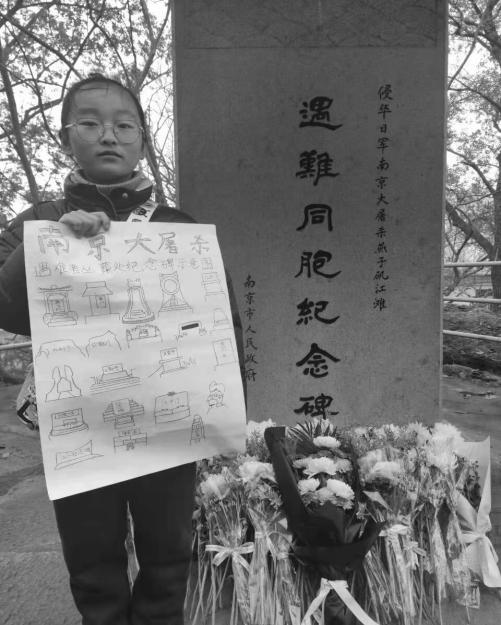 南京大屠杀
遇难者丛葬处纪念碑示意图
侵华日军南京大屠杀燕子矶江滩
遇難同胞紀念碑
南京市人民政府